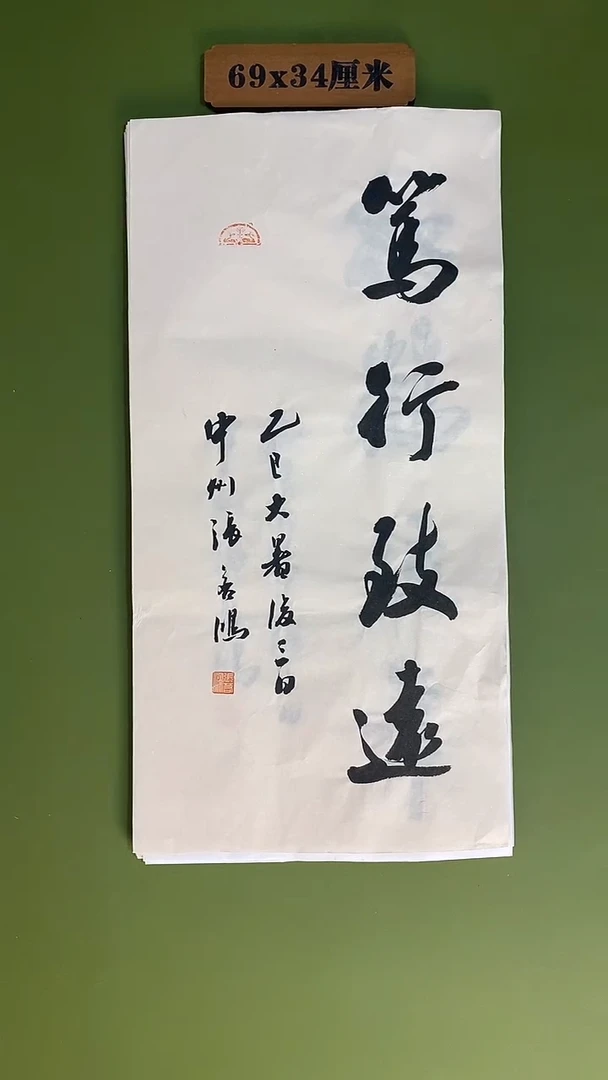 69x34厘米
篤行致遠
乙巳大暑後三日
中州張名鴻